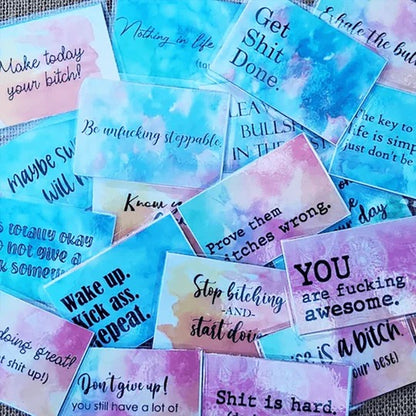 Make today
your bitch!
Nothing in life
Get Shit
Done.
Exhale the
Be unfucking stoppable.
LEA
BULLSH
IN THE
The key to
life is simp
just don't be
maybe
will
Know
day
Prove them
bitches wrong.
totally okay
not give a
somew
Wake up.
Kick ass.
Repeat.
Stop bitching
-AND-
start doin
YOU
are fucking
awesome.
is a bitch.
best)
doing great!
shit up!)
Don't give up!
you still have a lot of
Shit is hard.